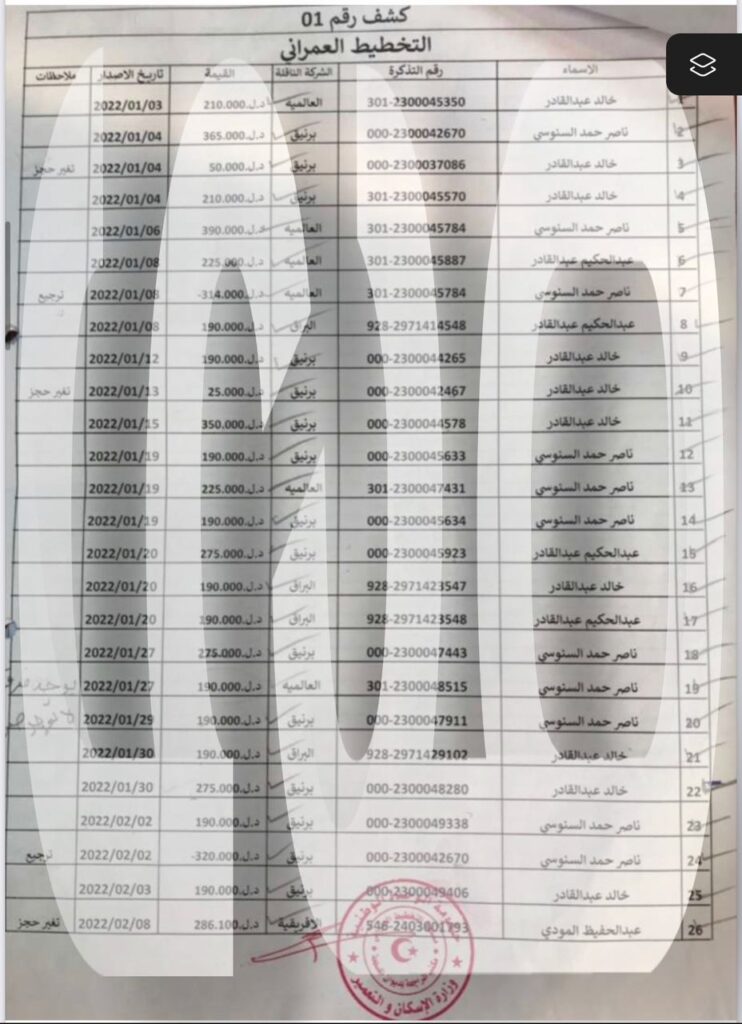 كشف رقم 01
التخطيط العمراني
الاسماء رقم التذكرة الشركة الناقلة القيمة تاريخ الاصدار ملاحظات
1 خالد عبدالقادر 301-2300045350 العالمية د.ل.210.000 2022/01/03
2 ناصر حمد السنوسي 000-2300042670 برنيق د.ل.365.000 2022/01/04
3 خالد عبدالقادر 000-2300037086 برنيق د.ل.50.000 2022/01/04 تغير حجز
4 خالد عبدالقادر 301-2300045570 برنيق د.ل.210.000 2022/01/04
5 ناصر حمد السنوسي 301-2300045784 العالميه د.ل.390.000 2022/01/06
6 عبدالحكيم عبدالقادر 301-2300045887 العالميه د.ل.225.000 2022/01/08
7 ناصر حمد السنوسي 301-2300045784 العالميه د.ل.314.000- 2022/01/08 ترجيع
8 عبدالحكيم عبدالقادر 928-2971414548 البراق د.ل.190.000 2022/01/08
9 خالد عبدالقادر 000-2300044265 برنيق د.ل.190.000 2022/01/12
10 خالد عبدالقادر 000-2300042467 برنيق د.ل.25.000 2022/01/13 تغير حجز
11 خالد عبدالقادر 000-2300044578 برنيق د.ل.350.000 2022/01/15
12 ناصر حمد السنوسي 000-2300045633 برنيق د.ل.190.000 2022/01/19
13 ناصر حمد السنوسي 301-2300047431 العالميه د.ل.225.000 2022/01/19
14 ناصر حمد السنوسي 000-2300045634 برنيق د.ل.190.000 2022/01/19
15 عبدالحكيم عبدالقادر 000-2300045923 برنيق د.ل.275.000 2022/01/20
16 خالد عبدالقادر 928-2971423547 البراق د.ل.190.000 2022/01/20
17 عبدالحكيم عبدالقادر 928-2971423548 البراق د.ل.190.000 2022/01/20
18 ناصر حمد السنوسي 000-2300047443 برنيق د.ل.275.000 2022/01/27
19 ناصر حمد السنوسي 301-2300048515 العالميه د.ل.190.000 2022/01/27
20 ناصر حمد السنوسي 000-2300047911 برنيق د.ل.190.000 2022/01/29
21 خالد عبدالقادر 928-2971429102 البراق د.ل.190.000 2022/01/30
22 خالد عبدالقادر 000-2300048280 برنيق د.ل.275.000 2022/01/30
23 ناصر حمد السنوسي 000-2300049338 برنيق د.ل.190.000 2022/02/02
24 ناصر حمد السنوسي 000-2300042670 برنيق د.ل.320.000- 2022/02/02 ترجيع
25 خالد عبدالقادر 000-2300049406 برنيق د.ل.190.000 2022/02/03
26 عبدالحفيظ المودي 546-2403001793 الافريقية د.ل.286.100 2022/02/08 تغير حجز
وزارة الإسكان و التعمير